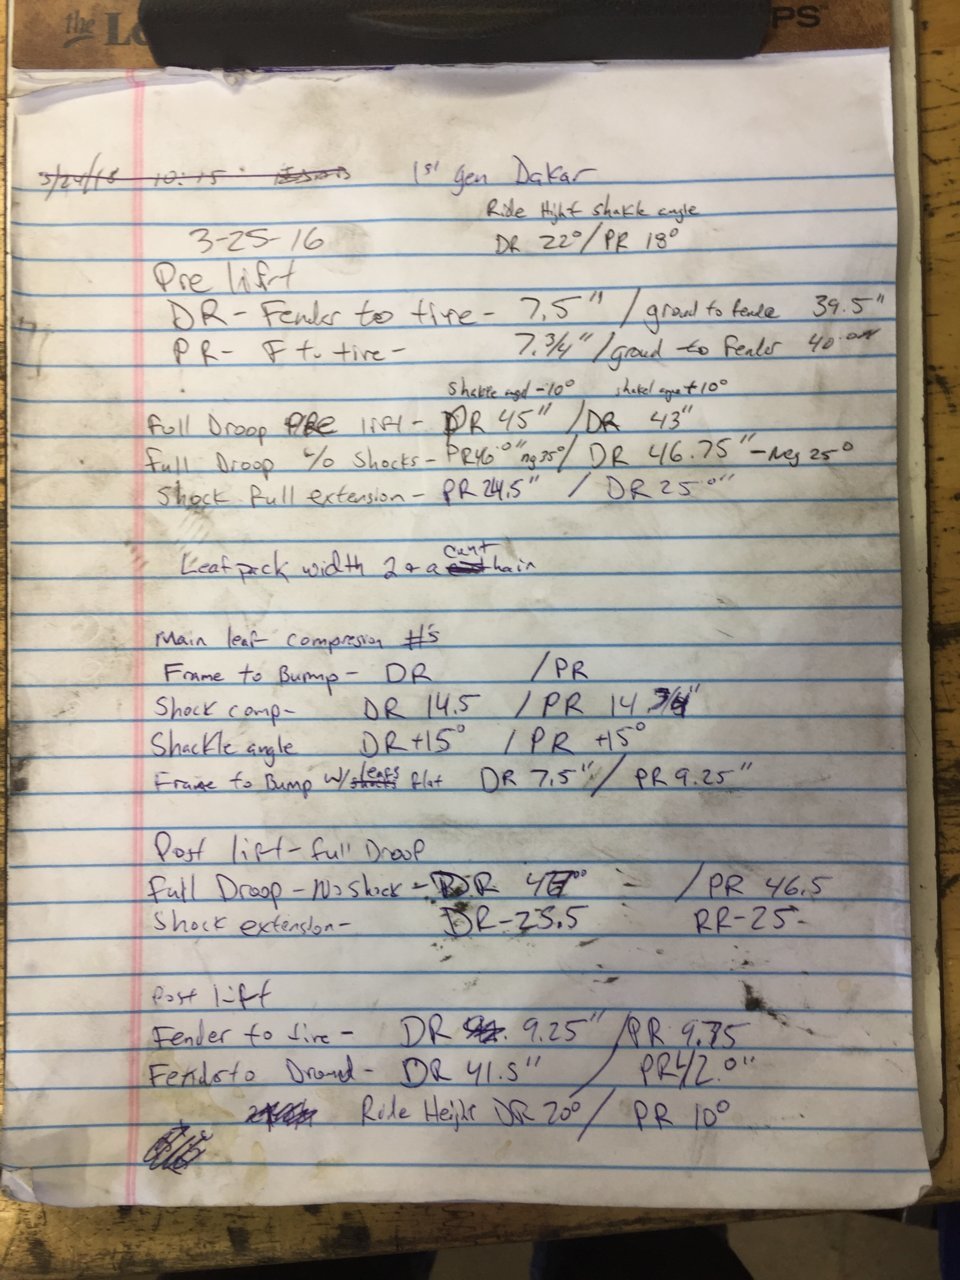 the Lo PS™
3/24/15 10:15 1st gen Dakar
Ride Hight shakle angle
3-25-16 DR 22°/PR 18°
Pre lift
DR- Fender to tire- 7.5"/groud to fende 39.5"
PR- F to tire- 7.3/4"/groud to Fender 40.0
shakle angl -10° shakel agne +10°
Full Droop PRE lift- DR 45"/DR 43"
full Droop w/o shocks- PR46.0" ng 25°/ DR 46.75"-Neg 25°
Shock full extension- PR 24.5" / DR 25.0"
Leaf pack width 2 & a cunt hair
Main leaf compresion #'s
Frame to Bump- DR /PR
Shock comp- DR 14.5 /PR 14 3/4"
Shackle angle DR+15° /PR +15°
Frame to Bump w/ leafs flat DR 7.5"/ PR 9.25"
Post lift-full Droop
full Droop-No shock- DR 47.0" /PR 46.5
Shock extension- DR-25.5 RR-25-
Post lift
Fender to tire- DR 9.25"/PR 9.75
Fender to Dround- DR 41.5" PR 42.0"
Ride Height DR 20°/ PR 10°